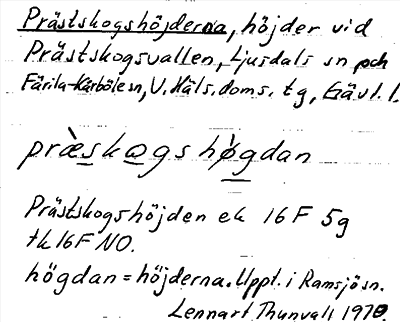 Prästskogshöjderna, höjder vid
Prästskogsvallen, Ljusdals sn och
Färila-Kårböle sn, V. Häls. doms. tg, Gävl. l.
præ̀skogs hø̀gdan
Prästskogshöjden ek 16 F 5g
tk 16 F NO.
högdan = höjderna. Uppt. i Ramsjö sn.
Lennart Thunvall 1978.